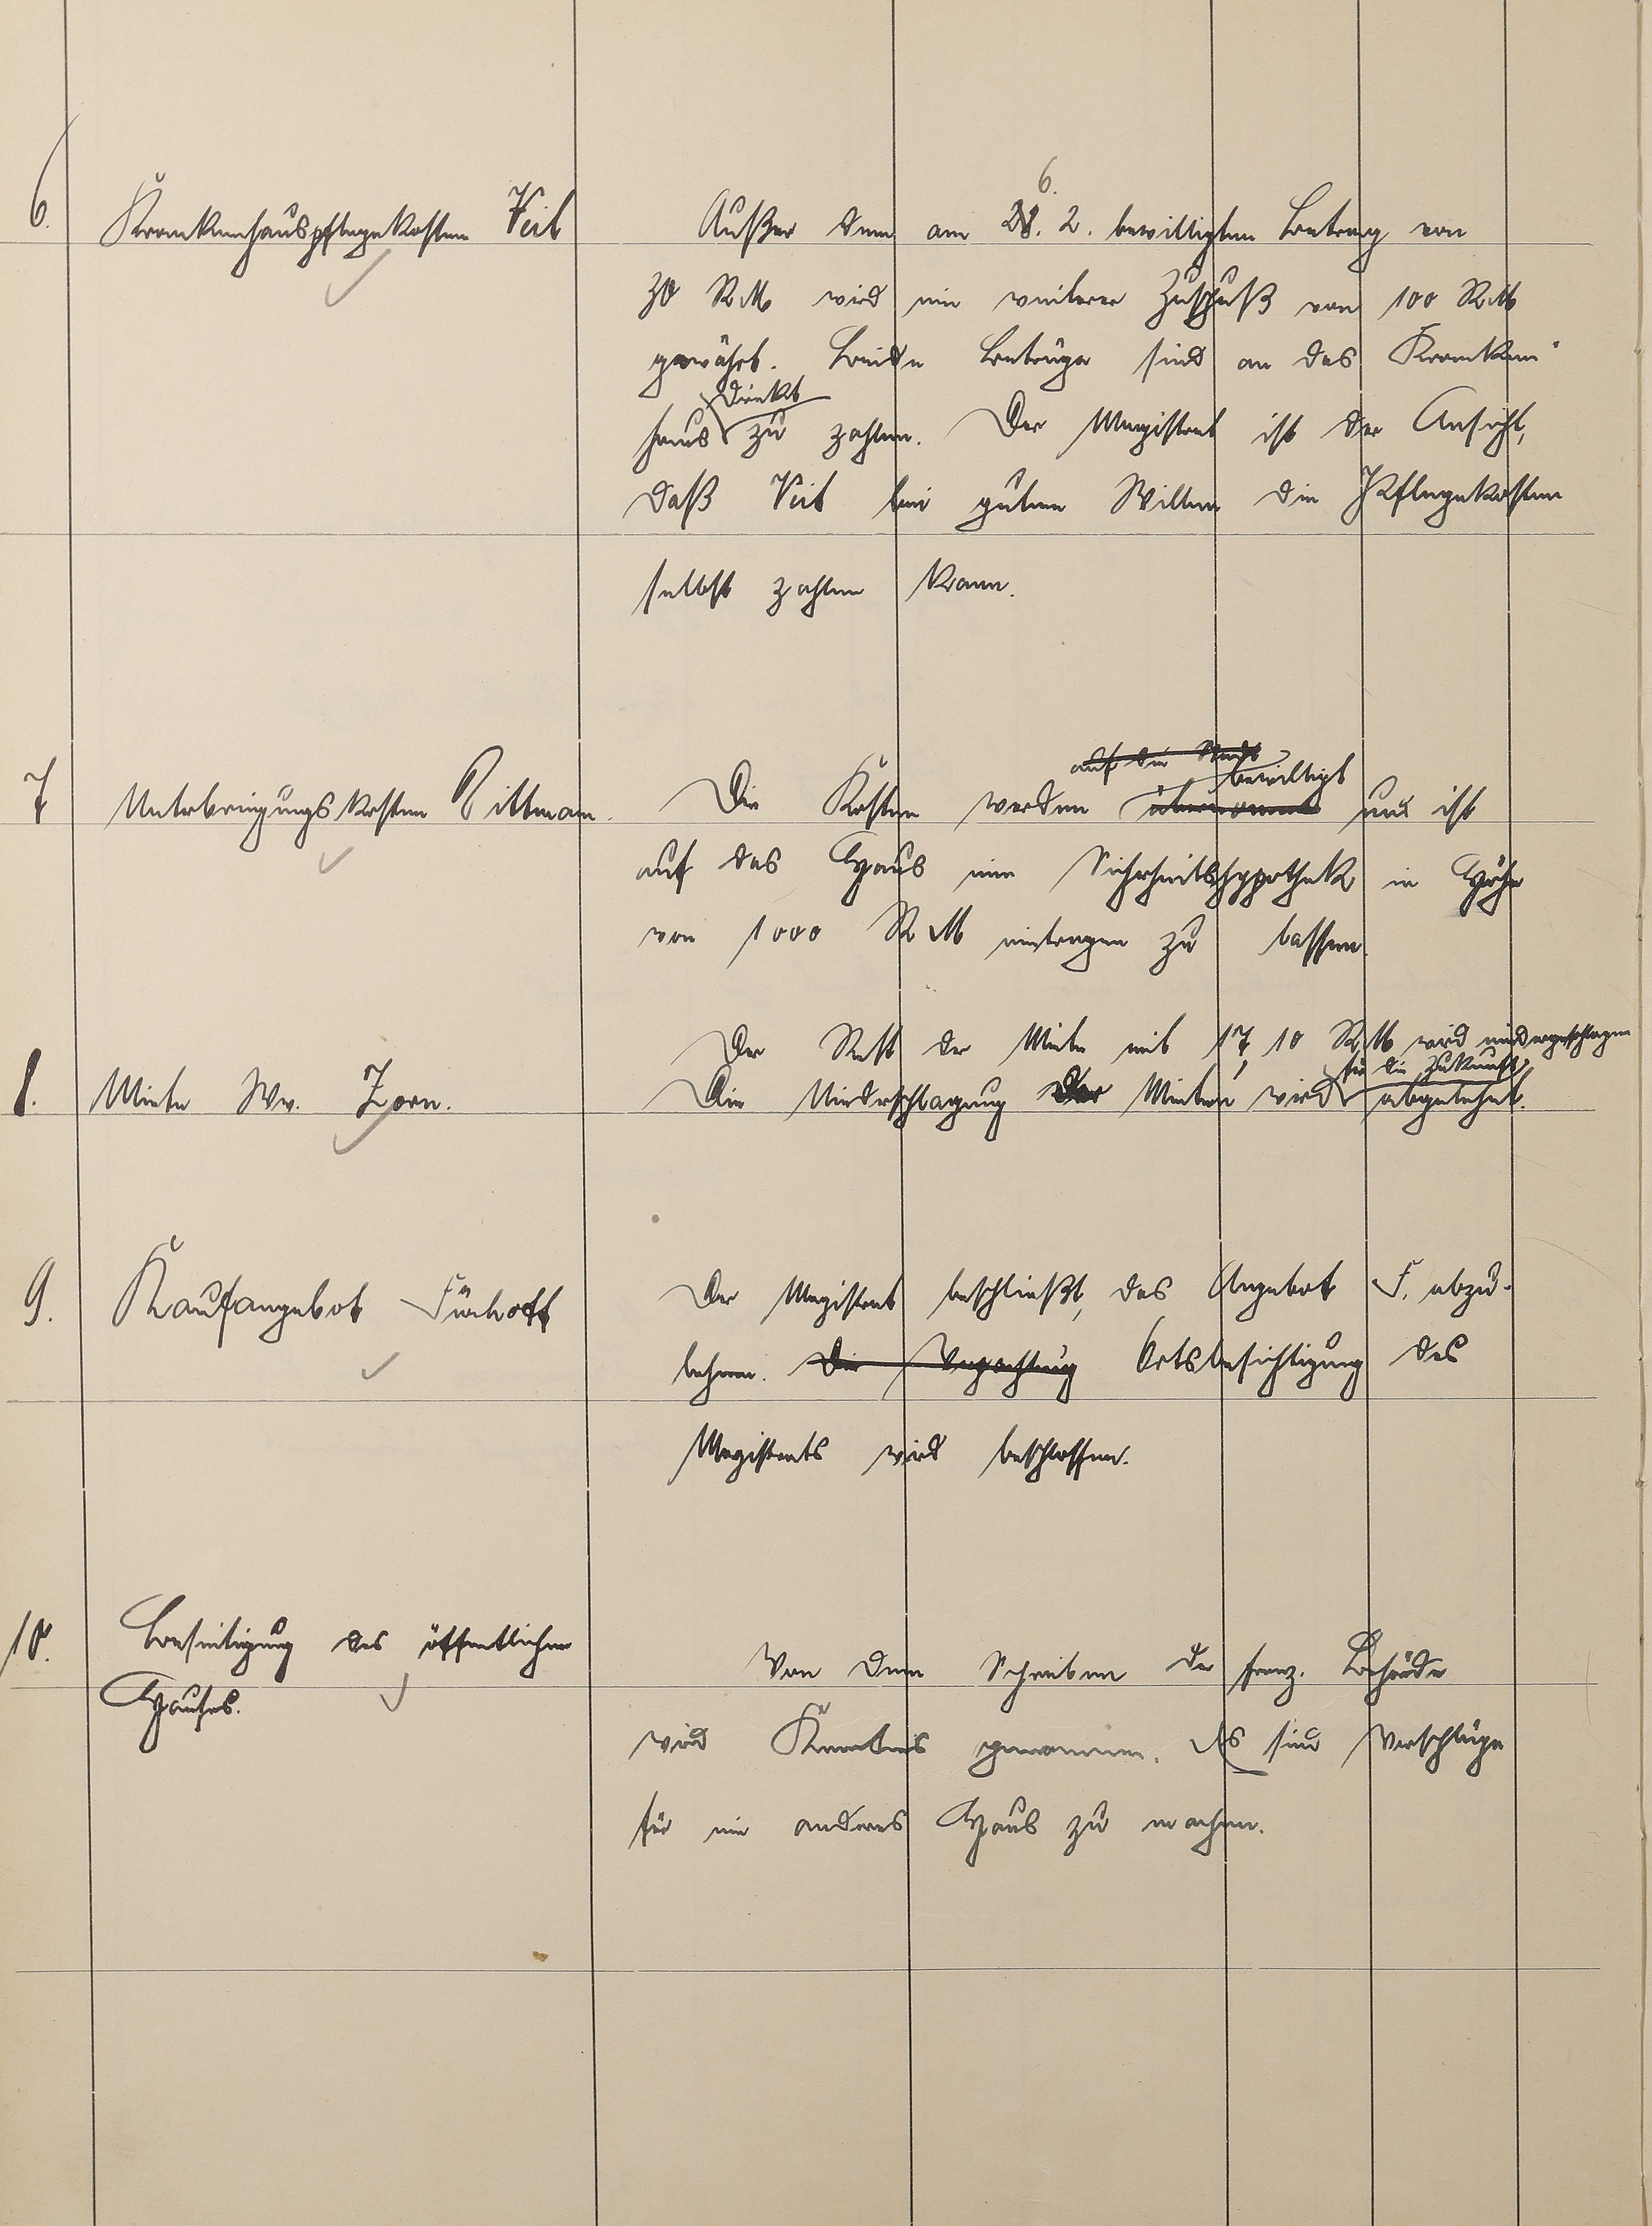 6. Krankenhauspflegekosten Veit
6.
Außer dem am 28. 2. bewilligten Betrag von
30 RM wird ein weiterer Zuschuß von 100 RM
gewährt. Beide Beträge sind an das Kranken-
direkt
haus zu zahlen. Der Magistrat ist der Ansicht,
daß Veit bei gutem Willen die Pflegekosten
selbst zahlen kann.
7. Unterbringungskosten Dittmann.
auf die Stadt
bewilligt
Die Kosten werden übernommen und ist
auf das Haus eine Sicherheitshypothek in Höhe
von 1000 RM eintragen zu lassen.
8. Miete Ww. Zorn.
Der Rest der Miete mit 17,10 RM wird niedergeschlagen
für die Zukunft
Die Niederschlagung der Mieten wird abgelehnt.
9. Kaufangebot
Der Magistrat beschließt, das Angebot F. abzu-
lehnen. Die Verpachtung Ortsbesichtigung des
Magistrats wird beschlossen.
10. Beseitigung des öffentlichen
Hauses.
Von dem Schreiben der franz. Behörde
wird Kenntnis genommen. Es sind Vorschläge
für ein anderes Haus zu machen.